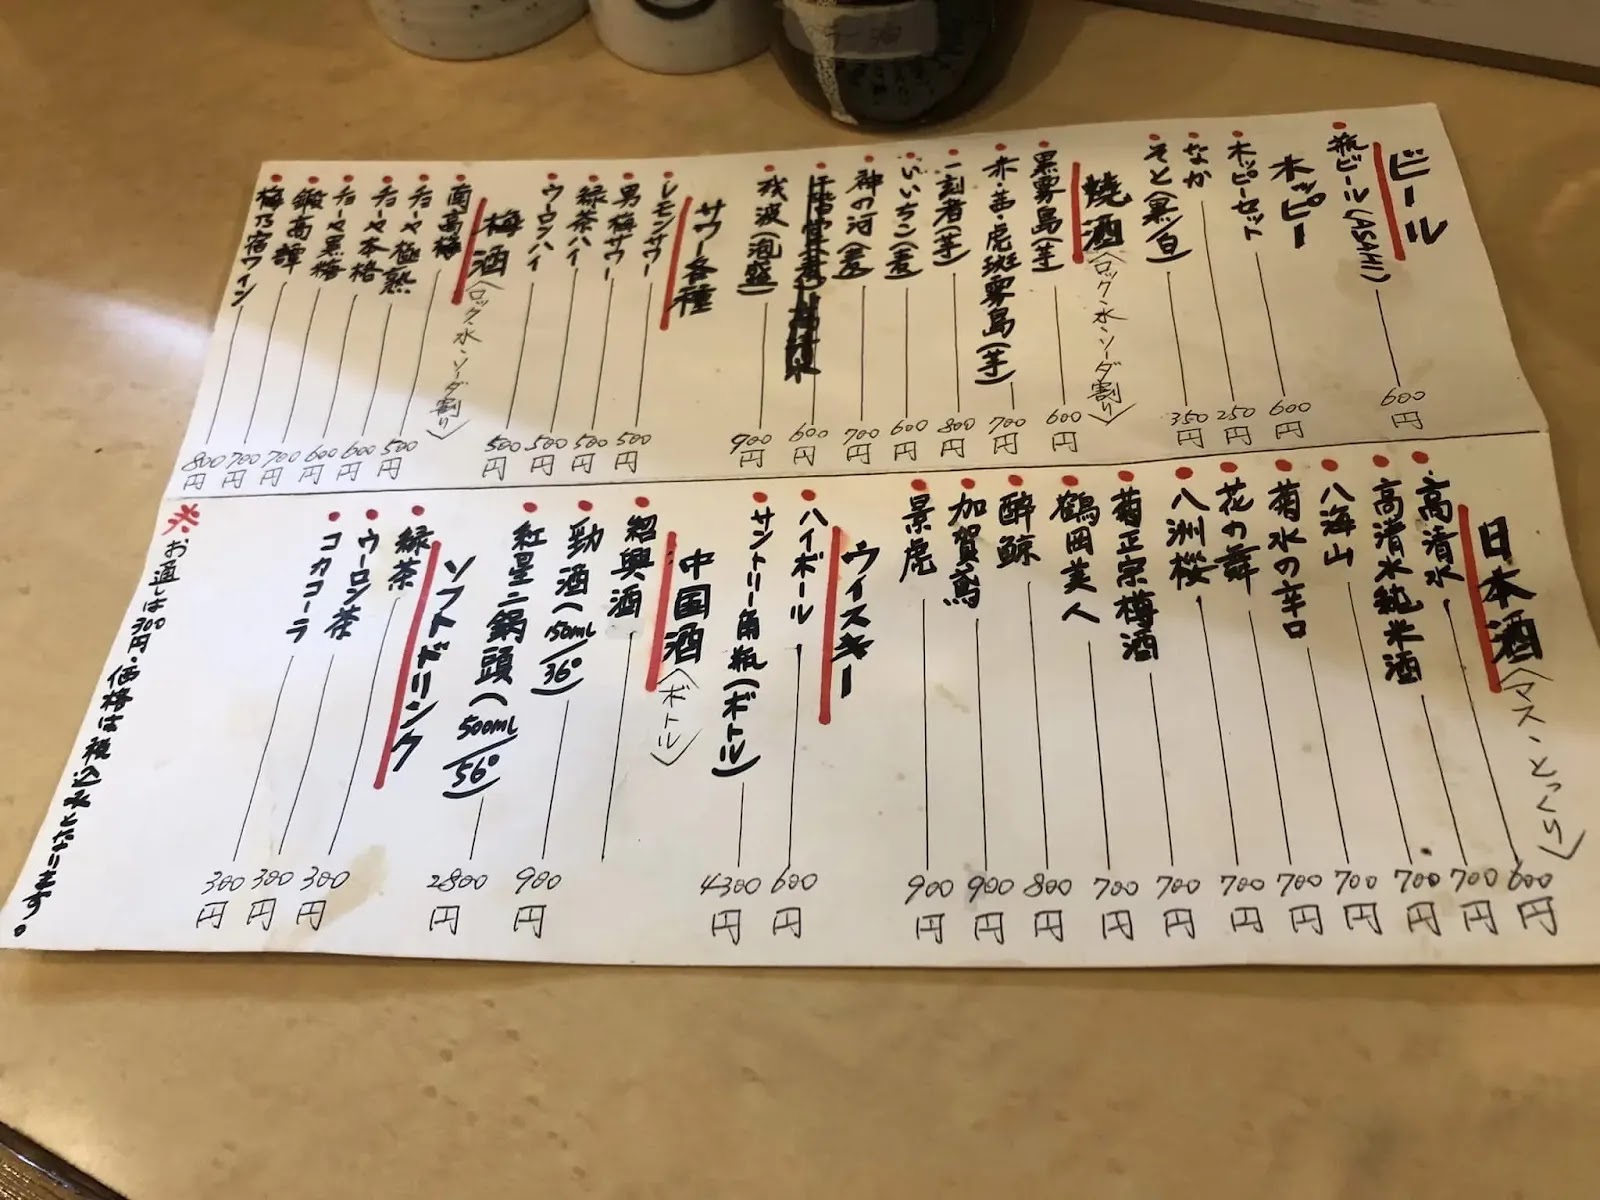 ビール
瓶ビール(ASAHI) 600円
ホッピー
ホッピーセット 600円
なか 250円
そと(黒/白) 350円
焼酒〈ロック・水・ソーダ割り〉
黒霧島(芋) 600円
赤・茜・虎斑霧島(芋) 700円
一刻者(芋) 800円
いいちこ(麦) 600円
神の河(麦) 700円
600円
残波(泡盛) 900円
サワー各種
レモンサワー 500円
男梅サワー 500円
緑茶ハイ 500円
ウーロンハイ 500円
梅酒〈ロック・水・ソーダ割り〉
南高梅 500円
チョーヤ極熟 600円
チョーヤ本格 600円
チョーヤ黒梅 700円
鍛高譚 700円
梅乃宿ワイン 800円
日本酒〈マス・とっくり〉
高清水 600円
高清水純米酒 700円
八海山 700円
菊水の辛口 700円
花の舞 700円
八洲桜 700円
菊正宗樽酒 700円
鶴岡美人 700円
酔鯨 800円
加賀鳶 900円
景虎 900円
ウイスキー
ハイボール 600円
サントリー角瓶(ボトル) 4300円
中国酒〈ボトル〉
紹興酒
勁酒(150ml/36°) 900円
紅星二鍋頭(500ml/56°) 2800円
ソフトドリンク
緑茶 300円
ウーロン茶 300円
コカコーラ 300円
※お通しは300円・価格は税込みとなります。